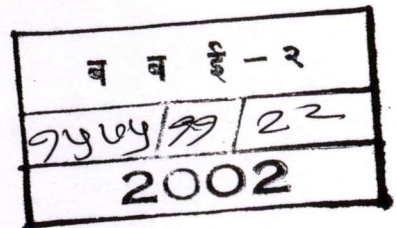 ब ब ई - २
१५७५/११/22
2002